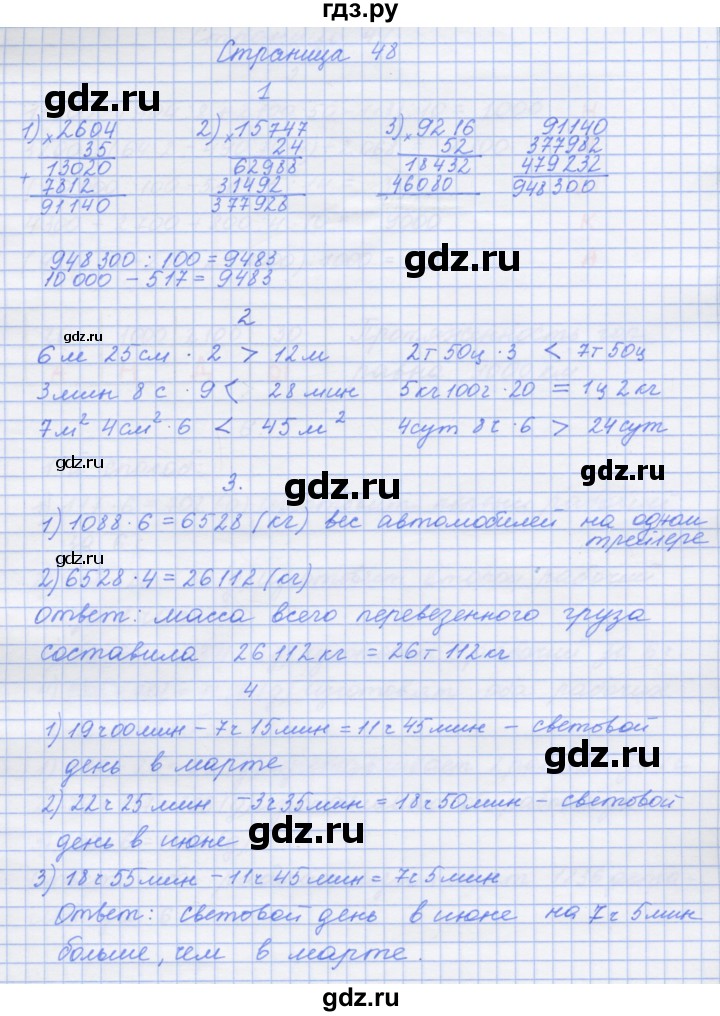 гдз.ру
Страница 48
gdz.ru
1
1) × 2604
35
+ 13020
7812
91140
2) × 15747
24
62988
31492
377928
3) × 9216
52
18432
46080
91140
377982
479232
948300
948300 : 100 = 9483
gdz.ru
10 000 − 517 = 9483
2
gdz.ru
6м 25см · 2 > 12м   2т 50ц · 3 < 7т 50ц
3мин 8с · 9 < 28мин   5кг100г · 20 = 1ц 2кг
7м² 4см² · 6 < 45м²   4сут 8ч · 6 > 24сут
gdz.ru
gdz.ru
3.
gdz.ru
1) 1088 · 6 = 6528 (кг) вес автомобилей на одном
трейлере
gdz.ru
2) 6528 · 4 = 26112 (кг)
Ответ: масса всего перевезенного груза
составила 26112кг = 26т 112кг
4
1) 19ч00мин − 7ч 15мин = 11ч 45мин − световой
день в марте
gdz.ru
2) 22ч 25мин − 3ч35мин = 18ч50мин − световой
день в июне
gdz.ru
3) 18ч 55мин − 11ч 45мин = 7ч 5мин
Ответ: световой день в июне на 7ч 5мин
больше, чем в марте.
gdz.ru
gdz.ru